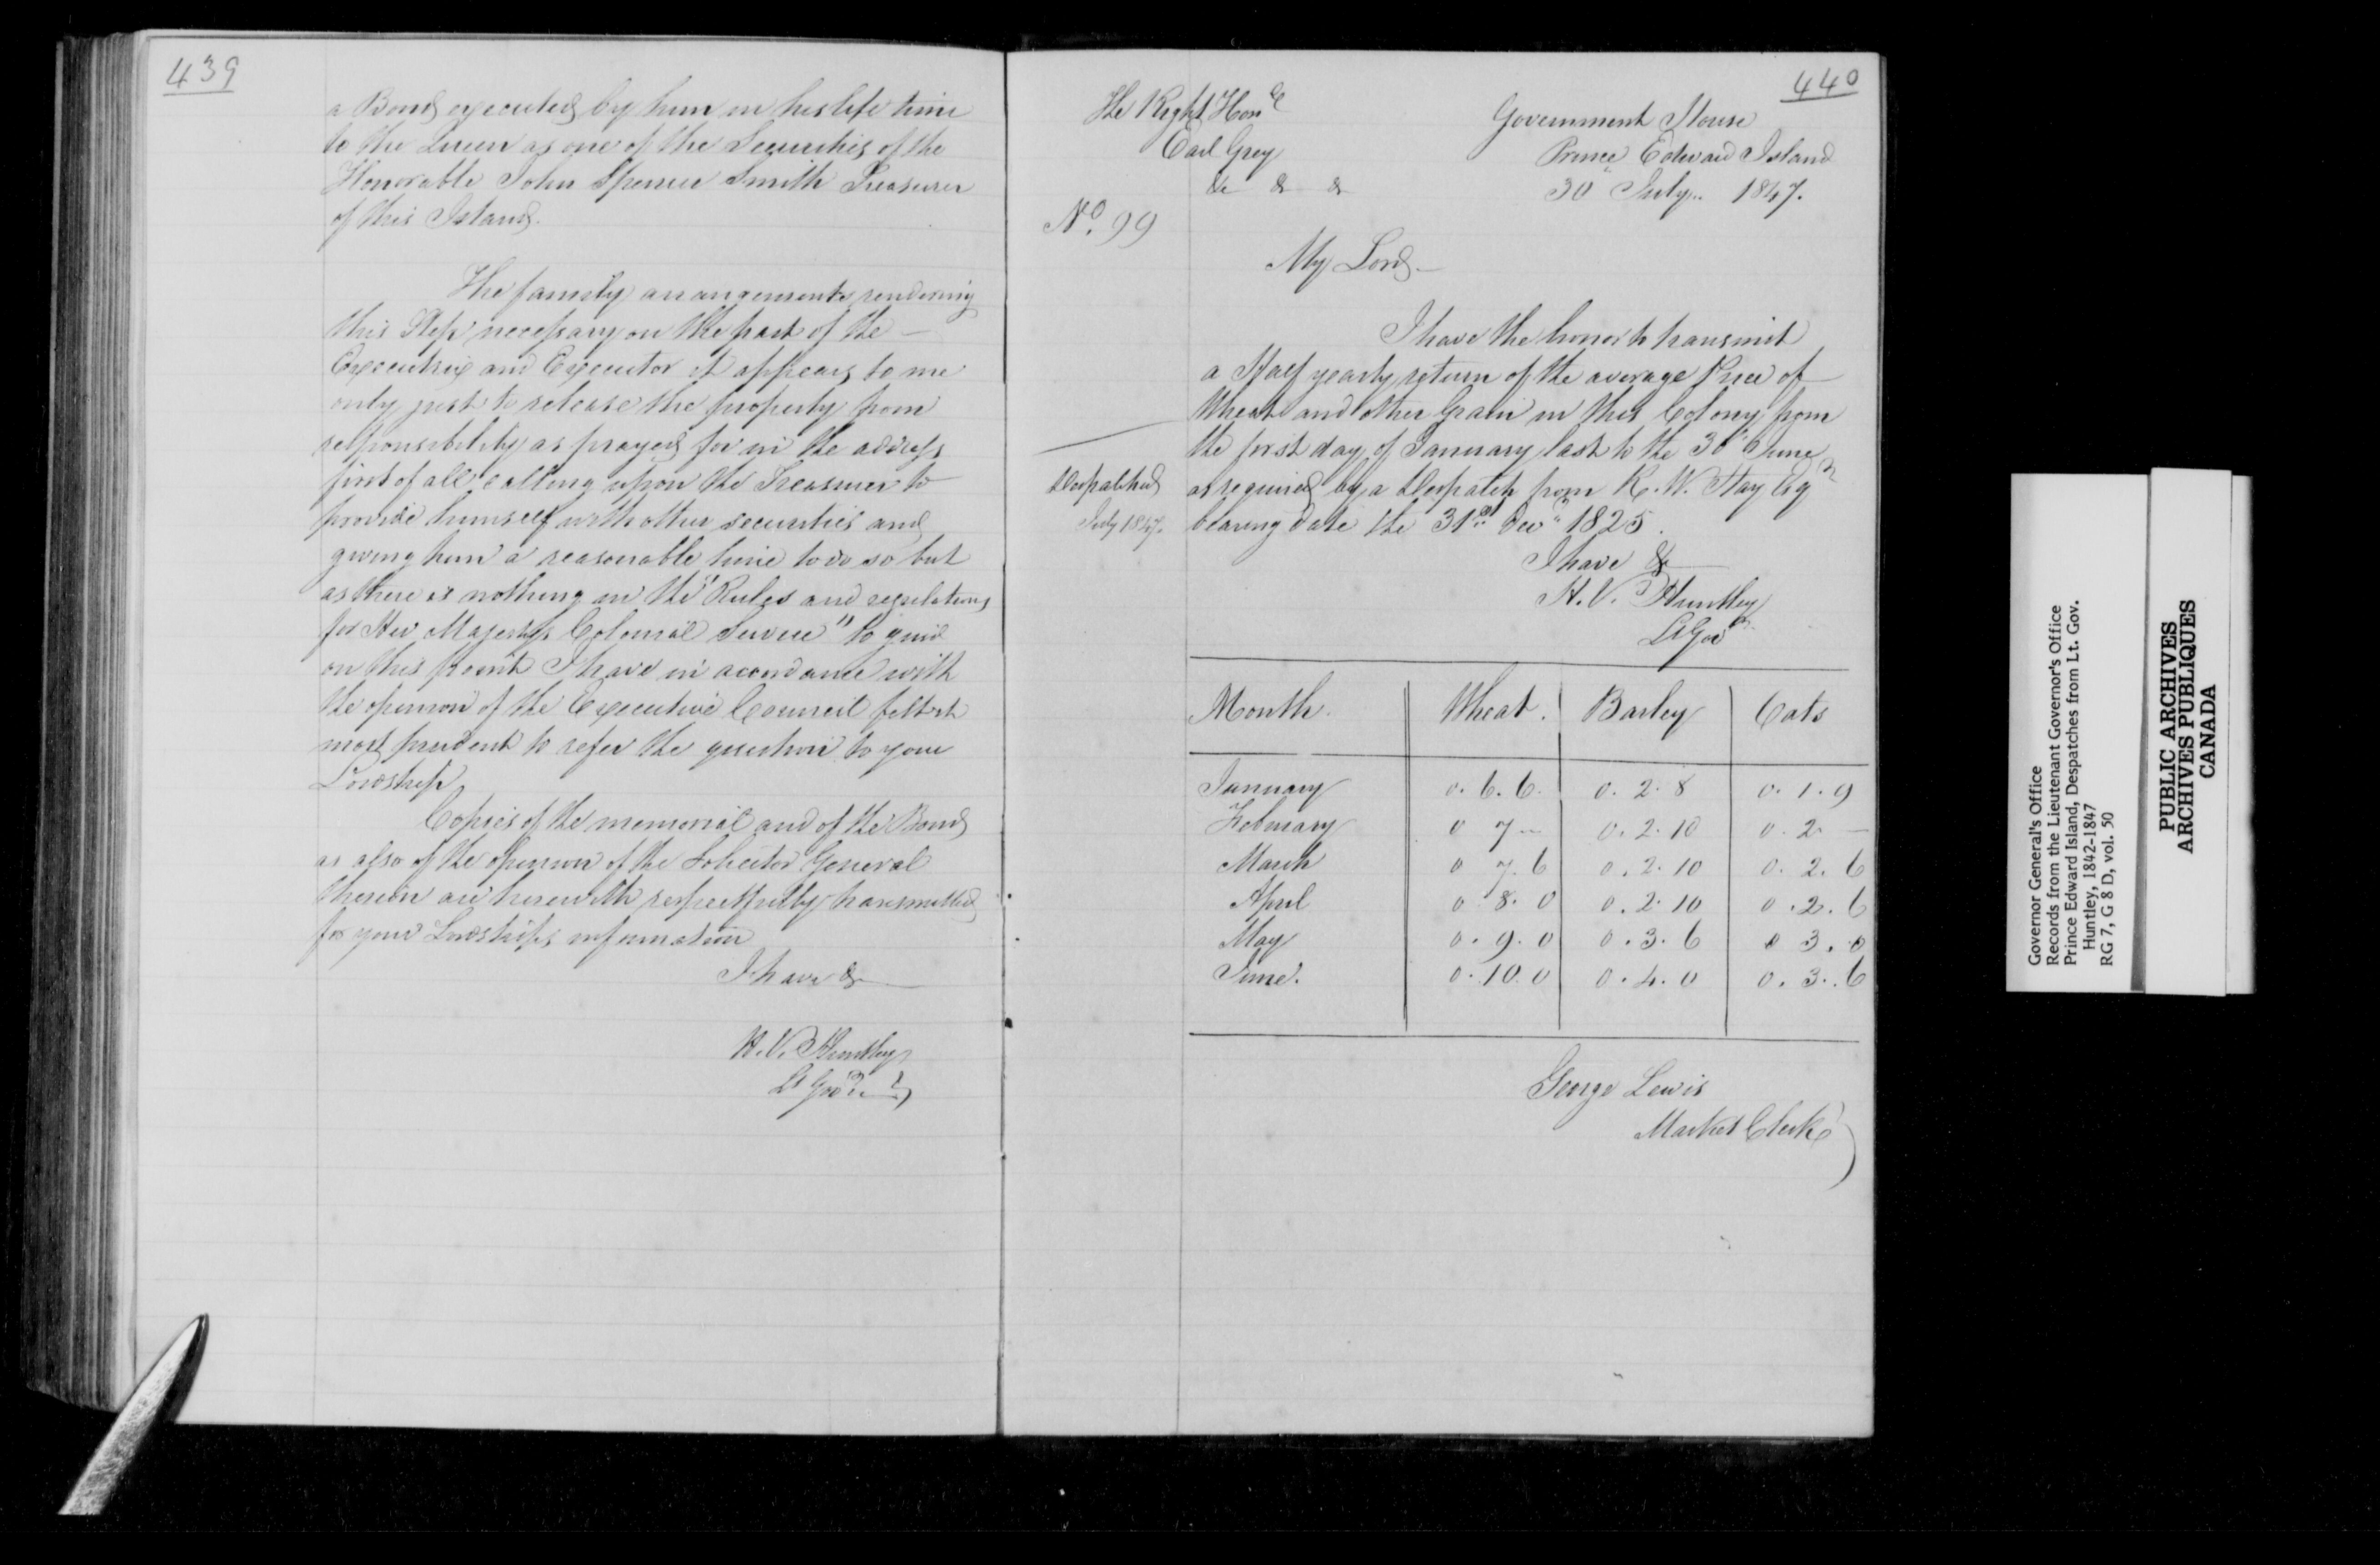 439
a Bond executed by him in his life time
to the Queen as one of the Securities of the
Honorable John Spencer Smith Treasurer
of this Island.
The family arrangements rendering
this Step necessary on the part of the —
Executrix and Executor it appears to me
only just to release the property from
responsibility as prayed for in the address
first of all calling upon the Treasurer to
provide himself with other securities and
giving him a reasonable time to do so but
as there is nothing in the "Rules and regulations
for Her Majestys Colonial Service" to guide
on this point I have in accordance with
the opinion of the Executive Council felt it
most prudent to refer the question to your
Lordship
Copies of the memorial and of the Bond
as also of the opinion of the Solicitor General
thereon are herewith respectfully transmitted
for your Lordships information
I have &c
H. V. Huntley
Lt Govr
440
The Right Honble
Earl Grey
&c &c &c
Government House
Prince Edward Island
30" July 1847.
No. 99
My Lord —
I have the honor to transmit
a Half yearly return of the average Price of —
Wheat and other Grain in this Colony from
the first day of January last to the 30" June
as required by a Despatch from R. W. Hay Esqr
bearing date the 31st Decr 1825.
Despatched
July 1847.
I have &c
H. V. Huntley
Lt Govr
Month. Wheat. Barley Oats
January 0. 6. 6. 0. 2. 8 0. 1. 9
February 0 7 — 0. 2. 10 0. 2. —
March 0 7. 6 0. 2. 10 0. 2. 6
April 0 8. 0 0. 2. 10 0. 2. 6
May 0. 9. 0 0. 3. 6 0 3. 0
June. 0. 10. 0 0. 4. 0 0. 3. 6
George Lewis
Market Clerk
Governor General's Office
Records from the Lieutenant Governor's Office
Prince Edward Island, Despatches from Lt. Gov.
Huntley, 1842-1847
RG 7, G 8 D, vol. 50
PUBLIC ARCHIVES
ARCHIVES PUBLIQUES
CANADA